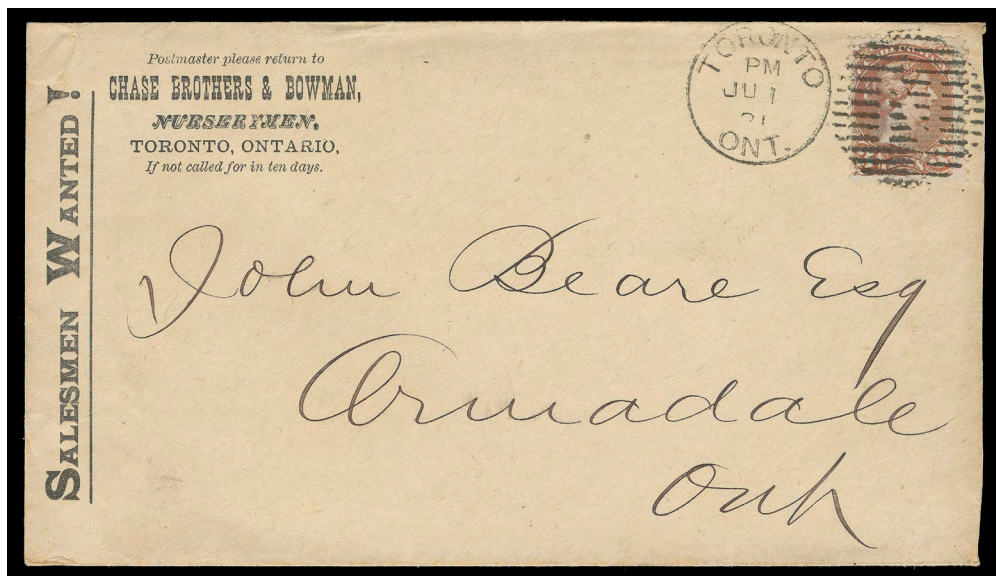 Postmaster please return to
CHASE BROTHERS & BOWMAN,
NURSERYMEN,
TORONTO, ONTARIO,
If not called for in ten days.
SALESMEN WANTED!
TORONTO
PM
JU 1
81
ONT.
John Beare Esq
Armadale
Ont